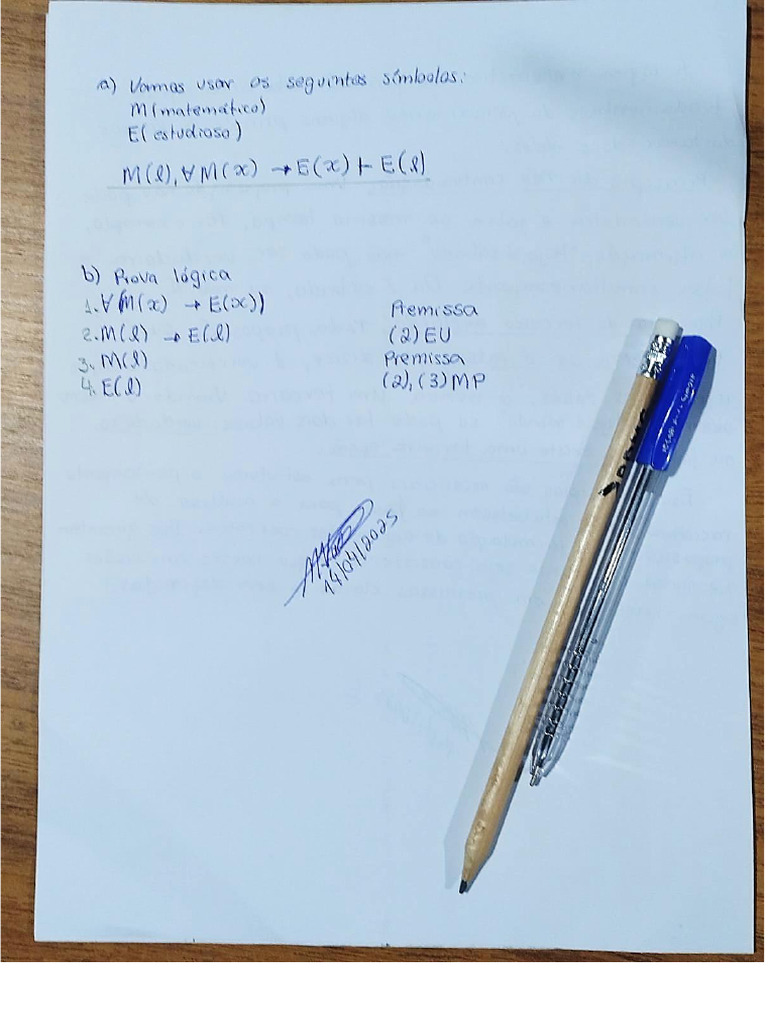 a) Vamos usar os seguintes símbolos:
M(matemático)
E(estudioso)
M(l), ∀M(x) → E(x) ⊢ E(l)
b) Prova lógica
1. ∀(M(x) → E(x)) Premissa
2. M(l) → E(l) (2) EU
3. M(l) Premissa
4. E(l) (2), (3) MP
14/04/2025